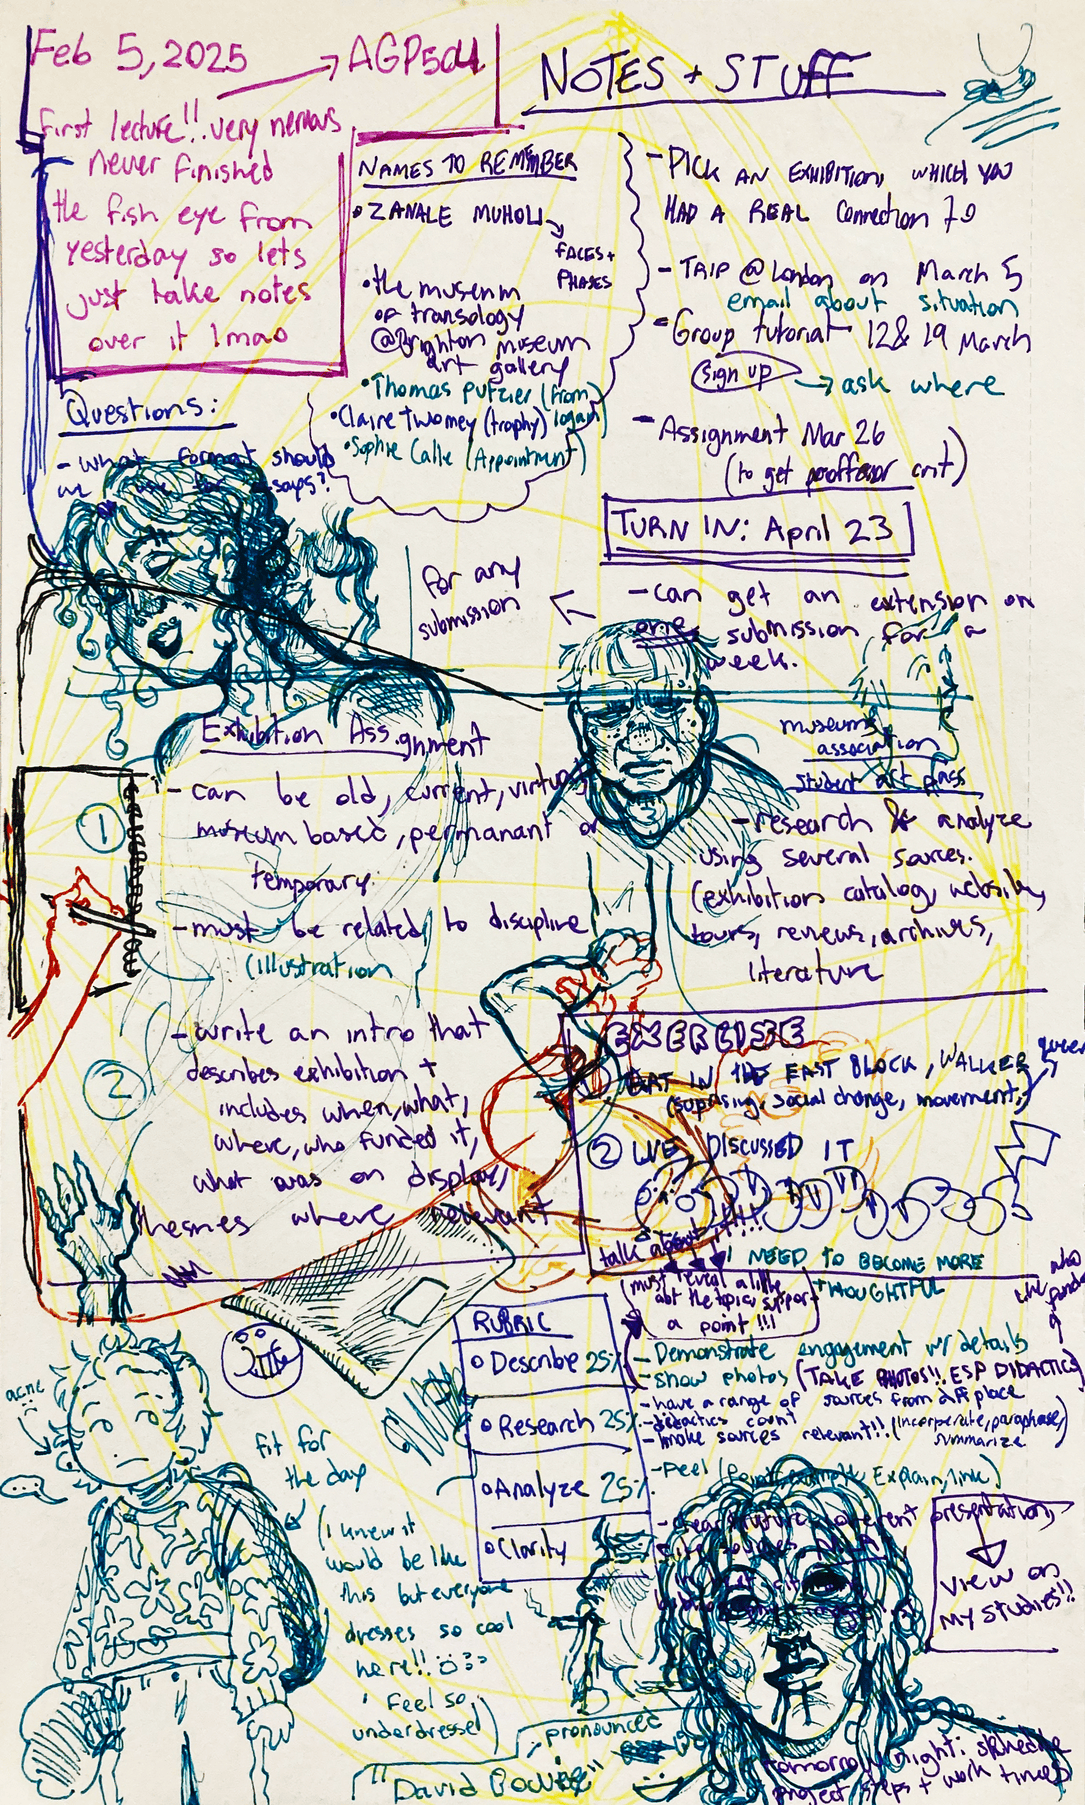 Feb 5, 2025 → AGP504
NOTES + STUFF
first lecture!! very nervous
never finished
the fish eye from
yesterday so lets
just take notes
over it lmao
NAMES TO REMEMBER
• ZANALE MUHOLI
FACES +
PHASES
• the museum
of transology
@Brighton museum
art gallery
• Thomas Putzier (from
logan)
• Claire Twomey (trophy)
• Sophie Calle (Appointment)
- PICK AN EXHIBITION, WHICH YOU
HAD A REAL Connection TO
- TRIP @ London on March 5
email about situation
• Group tutorial 12 & 19 March
sign up → ask where
- Assignment Mar 26
(to get proffessor crit)
TURN IN: April 23
- can get an extension on
one submission for a
week.
for any
submission
Questions:
- what format should
we use for essays?
Exhibition Assignment
1
- can be old, current, virtual,
museum based, permanant or
temporary.
- must be related to discipline
(illustration
2
- write an intro that
describes exhibition +
includes when, what,
where, who funded it,
what was on display,
thesmes where relevant
museums
association
student art pass
- research & analyze
using several sources.
(exhibition catalog, website,
tours, reviews, archives,
literature
EXERCISE
ART IN THE EAST BLOCK, WALKER
(suprising, social change, movement,)
queer
② WE DISCUSSED IT
talk about it!!!!
I NEED TO BECOME MORE
THOUGHTFUL
(must reveal a little
abt the topic, support
a point!!!
RUBRIC
• Describe 25%
• Research 25%
• Analyze 25%
• Clarity
- Demonstrate engagement w/ details
- show photos (TAKE PHOTOS!! ESP DIDACTICS)
- have a range of sources from diff place
- didactics count
- make sources relevant!! (incorperate, paraphase,
summarize
- Peel (Point, example, Explain, link)
presentation,
view on
my studies!!
acne
fit for
the day
(I knew it
would be like
this but everyone
dresses so cool
here!!
i feel so
underdressed)
pronounced
"David Bowie"
tomorrow night: schedule
project steps + work times